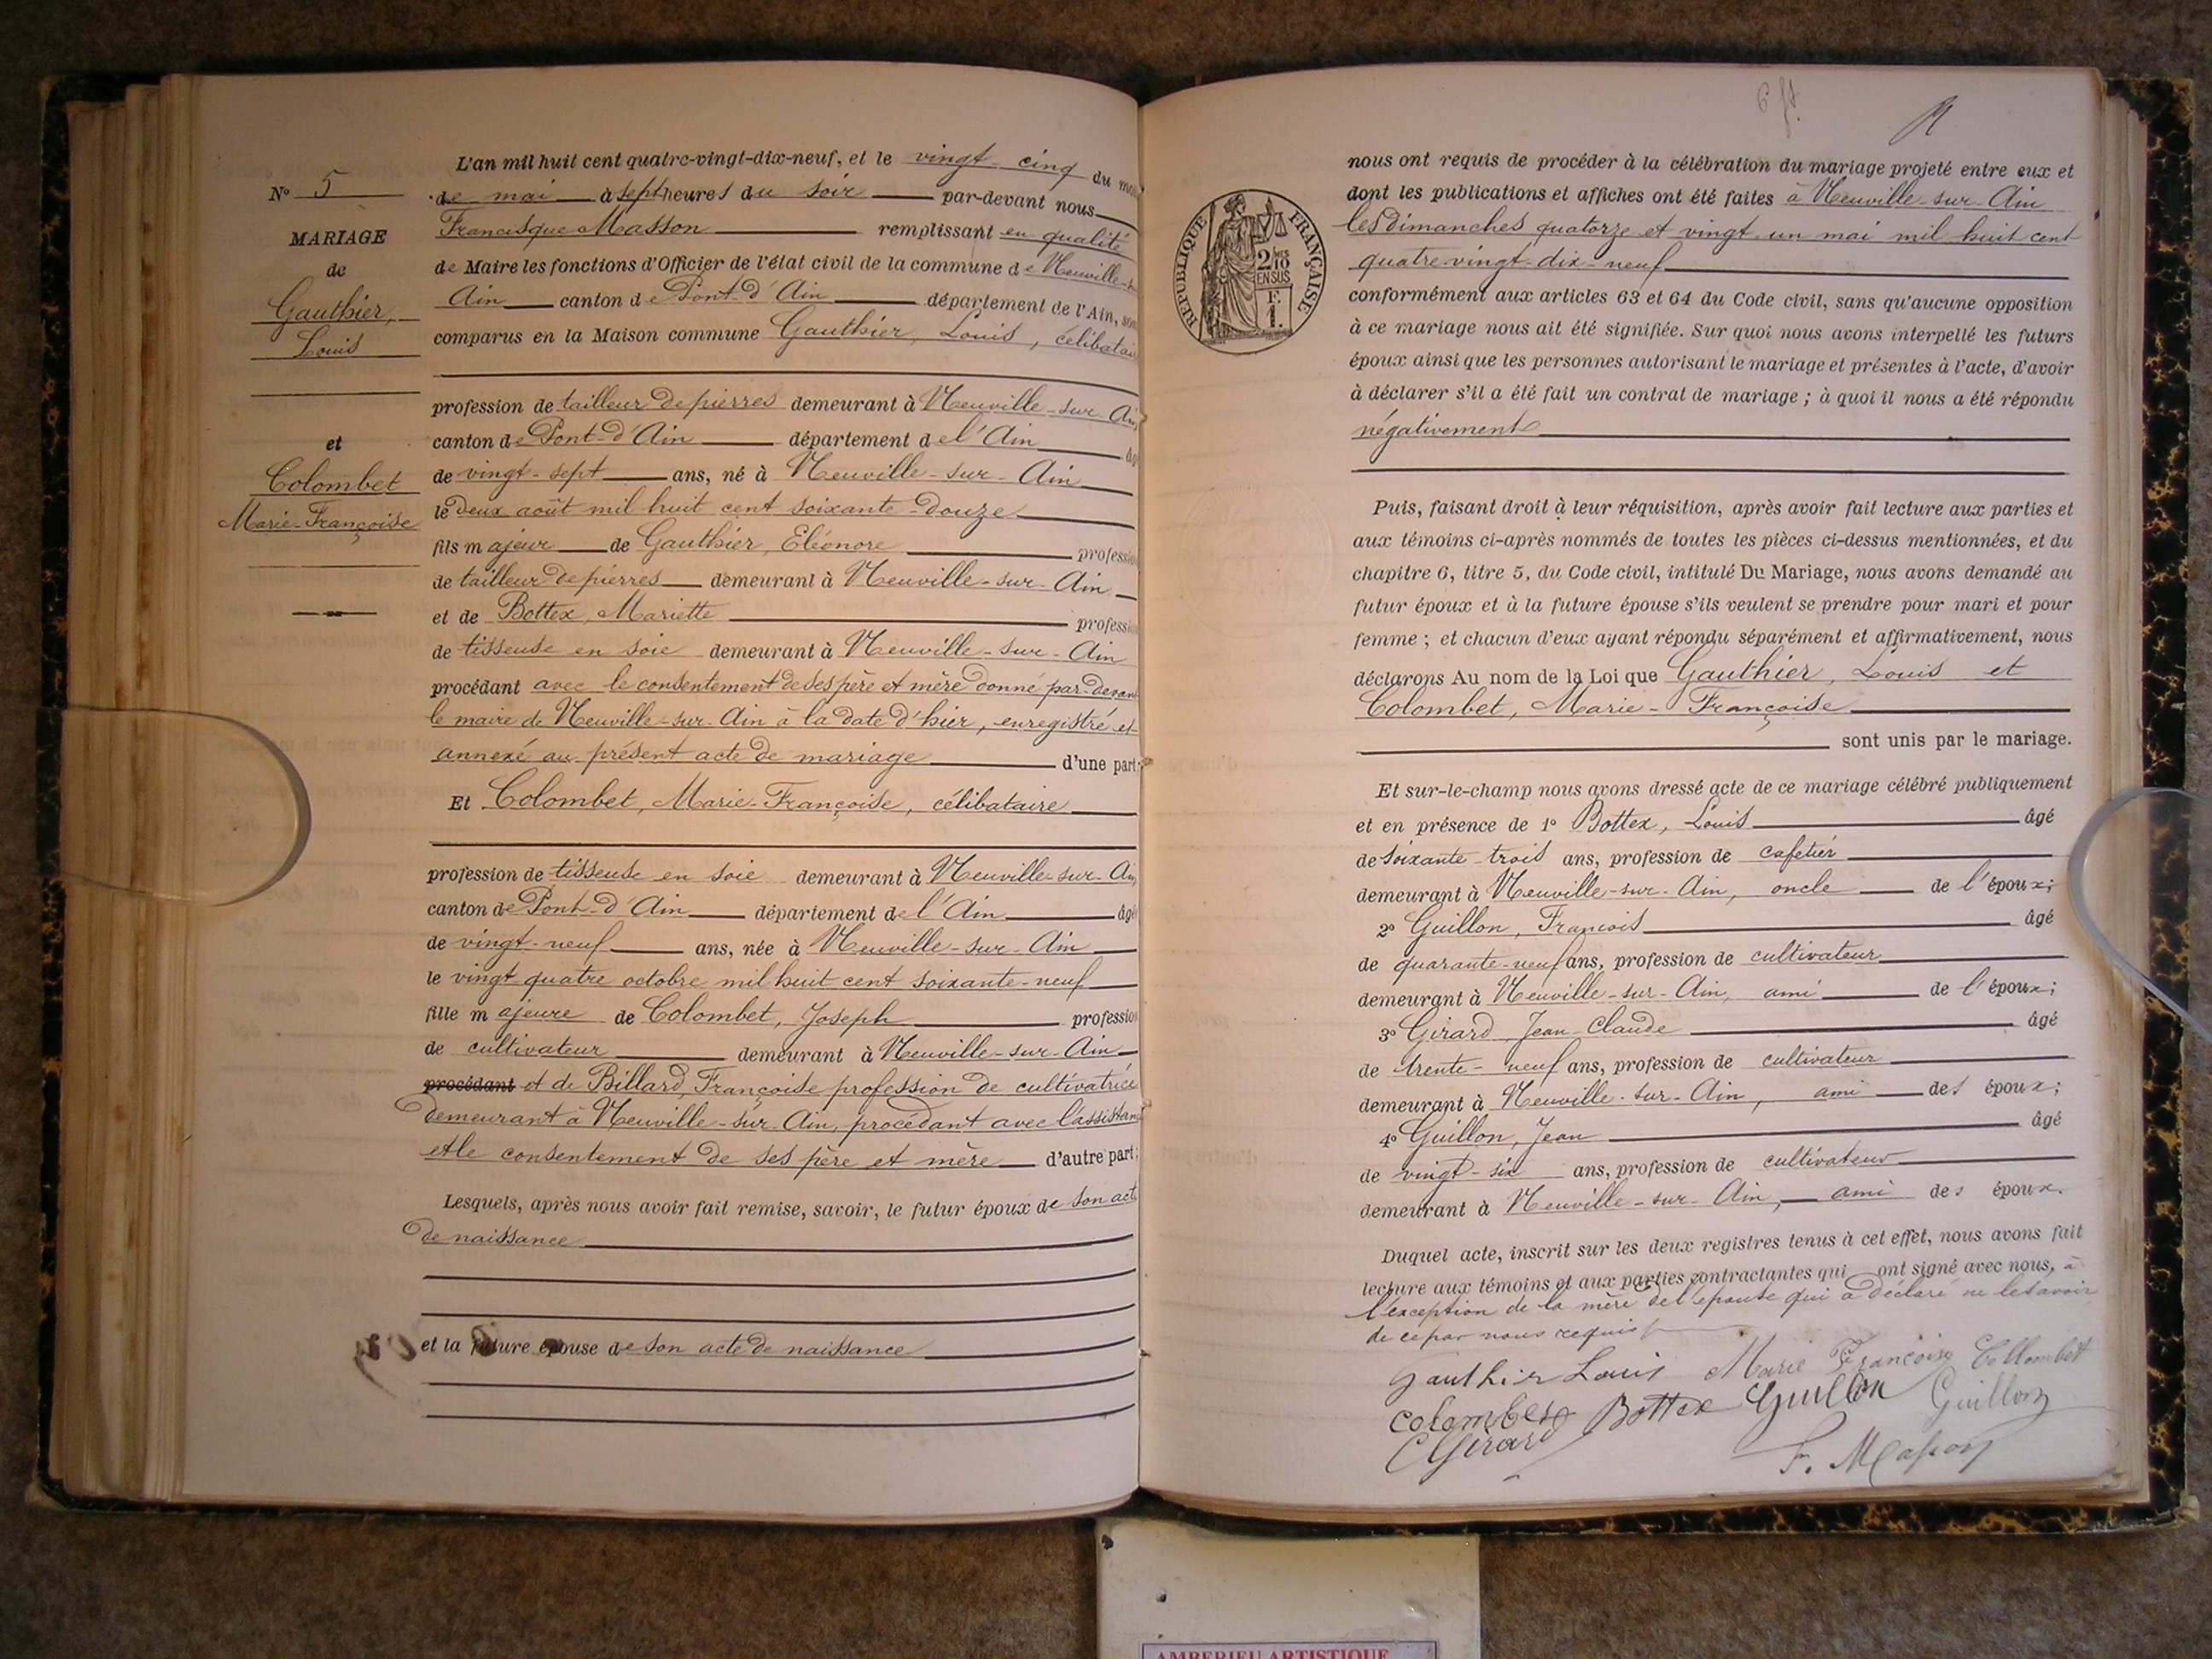 N° 5
MARIAGE
de
Gauthier,
Louis
et
Colombet
Marie-Françoise
L'an mil huit cent quatre-vingt-dix-neuf, et le vingt-cinq du
de mai à sept heures du soir par-devant nous
Francisque Masson remplissant en qualité
de Maire les fonctions d'Officier de l'état civil de la commune de Neuville-
Ain canton de Pont-d'Ain département de l'Ain,
comparus en la Maison commune Gauthier, Louis, célibatai
profession de tailleur de pierres demeurant à Neuville-sur-Ai
canton de Pont-d'Ain département de l'Ain âg
de vingt-sept ans, né à Neuville-sur-Ain
le deux août mil huit cent soixante-douze
fils majeur de Gauthier, Eléonore professio
de tailleur de pierres demeurant à Neuville-sur-Ain
et de Bottex, Mariette professi
de tisseuse en soie demeurant à Neuville-sur-Ain
procédant avec le consentement de ses père et mère donné par-devan
le maire de Neuville-sur-Ain à la date d'hier, enregistré et
annexé au présent acte de mariage d'une part;
Et Colombet, Marie-Françoise, célibataire
profession de tisseuse en soie demeurant à Neuville-sur-Ain
canton de Pont-d'Ain département de l'Ain âgé
de vingt-neuf ans, née à Neuville-sur-Ain
le vingt quatre octobre mil huit cent soixante-neuf
fille majeure de Colombet, Joseph professio
de cultivateur demeurant à Neuville-sur-Ain
procédant et de Billard, Françoise profession de cultivatrice
demeurant à Neuville-sur-Ain, procédant avec l'assistan
et le consentement de ses père et mère d'autre part;
Lesquels, après nous avoir fait remise, savoir, le futur époux de son acte
de naissance
et la future épouse de son acte de naissance
RÉPUBLIQUE FRANÇAISE
2/10
EN SUS
F.
1.
nous ont requis de procéder à la célébration du mariage projeté entre eux et
dont les publications et affiches ont été faites à Neuville-sur-Ain
les dimanches quatorze et vingt-un mai mil huit cent
quatre-vingt-dix-neuf
conformément aux articles 63 et 64 du Code civil, sans qu'aucune opposition
à ce mariage nous ait été signifiée. Sur quoi nous avons interpellé les futurs
époux ainsi que les personnes autorisant le mariage et présentes à l'acte, d'avoir
à déclarer s'il a été fait un contrat de mariage ; à quoi il nous a été répondu
négativement
Puis, faisant droit à leur réquisition, après avoir fait lecture aux parties et
aux témoins ci-après nommés de toutes les pièces ci-dessus mentionnées, et du
chapitre 6, titre 5, du Code civil, intitulé Du Mariage, nous avons demandé au
futur époux et à la future épouse s'ils veulent se prendre pour mari et pour
femme ; et chacun d'eux ayant répondu séparément et affirmativement, nous
déclarons Au nom de la Loi que Gauthier, Louis et
Colombet, Marie-Françoise
sont unis par le mariage.
Et sur-le-champ nous avons dressé acte de ce mariage célébré publiquement
et en présence de 1° Bottex, Louis âgé
de soixante-trois ans, profession de cafetier
demeurant à Neuville-sur-Ain, oncle de l'époux;
2° Guillon, François âgé
de quarante-neuf ans, profession de cultivateur
demeurant à Neuville-sur-Ain, ami de l'époux;
3° Girard, Jean-Claude âgé
de trente-neuf ans, profession de cultivateur
demeurant à Neuville-sur-Ain, ami des époux;
4° Guillon, Jean âgé
de vingt-six ans, profession de cultivateur
demeurant à Neuville-sur-Ain, ami des époux.
Duquel acte, inscrit sur les deux registres tenus à cet effet, nous avons fait
lecture aux témoins et aux parties contractantes qui ont signé avec nous, à
l'exception de la mère de l'épouse qui a déclaré ne le savoir
de ce par nous requis
Gauthier Louis Marie Françoise Collombet
Colombet Bottex Guillon Guillon
Girard F. Masson
AMBERIEU ARTISTIQUE